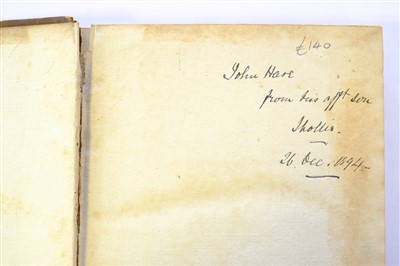 £140
John Hare
from his afft son
Sholto.
26 Dec. 1894.